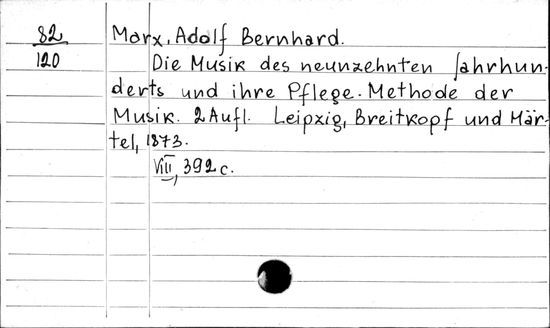 82 Marx, Adolf Bernhard.
120 Die Musik des neunzehnten Jahrhun-
derts und ihre Pflege. Methode der
Musik. 2 Aufl. Leipzig, Breitkopf und Här-
tel, 1873.
VIII, 392 c.